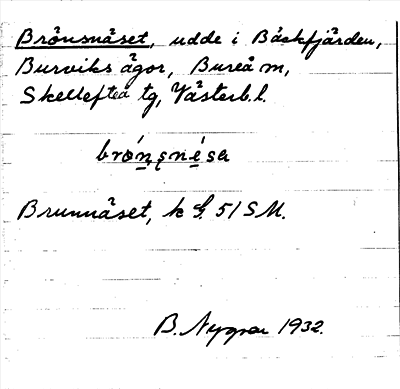 Brönsnäset, udde i Bäckfjärden,
Burviks ägor, Bureå sn,
Skellefteå tg, Västerb. l.
Brunnäset, k 51 SM.
B. Nygren 1932.